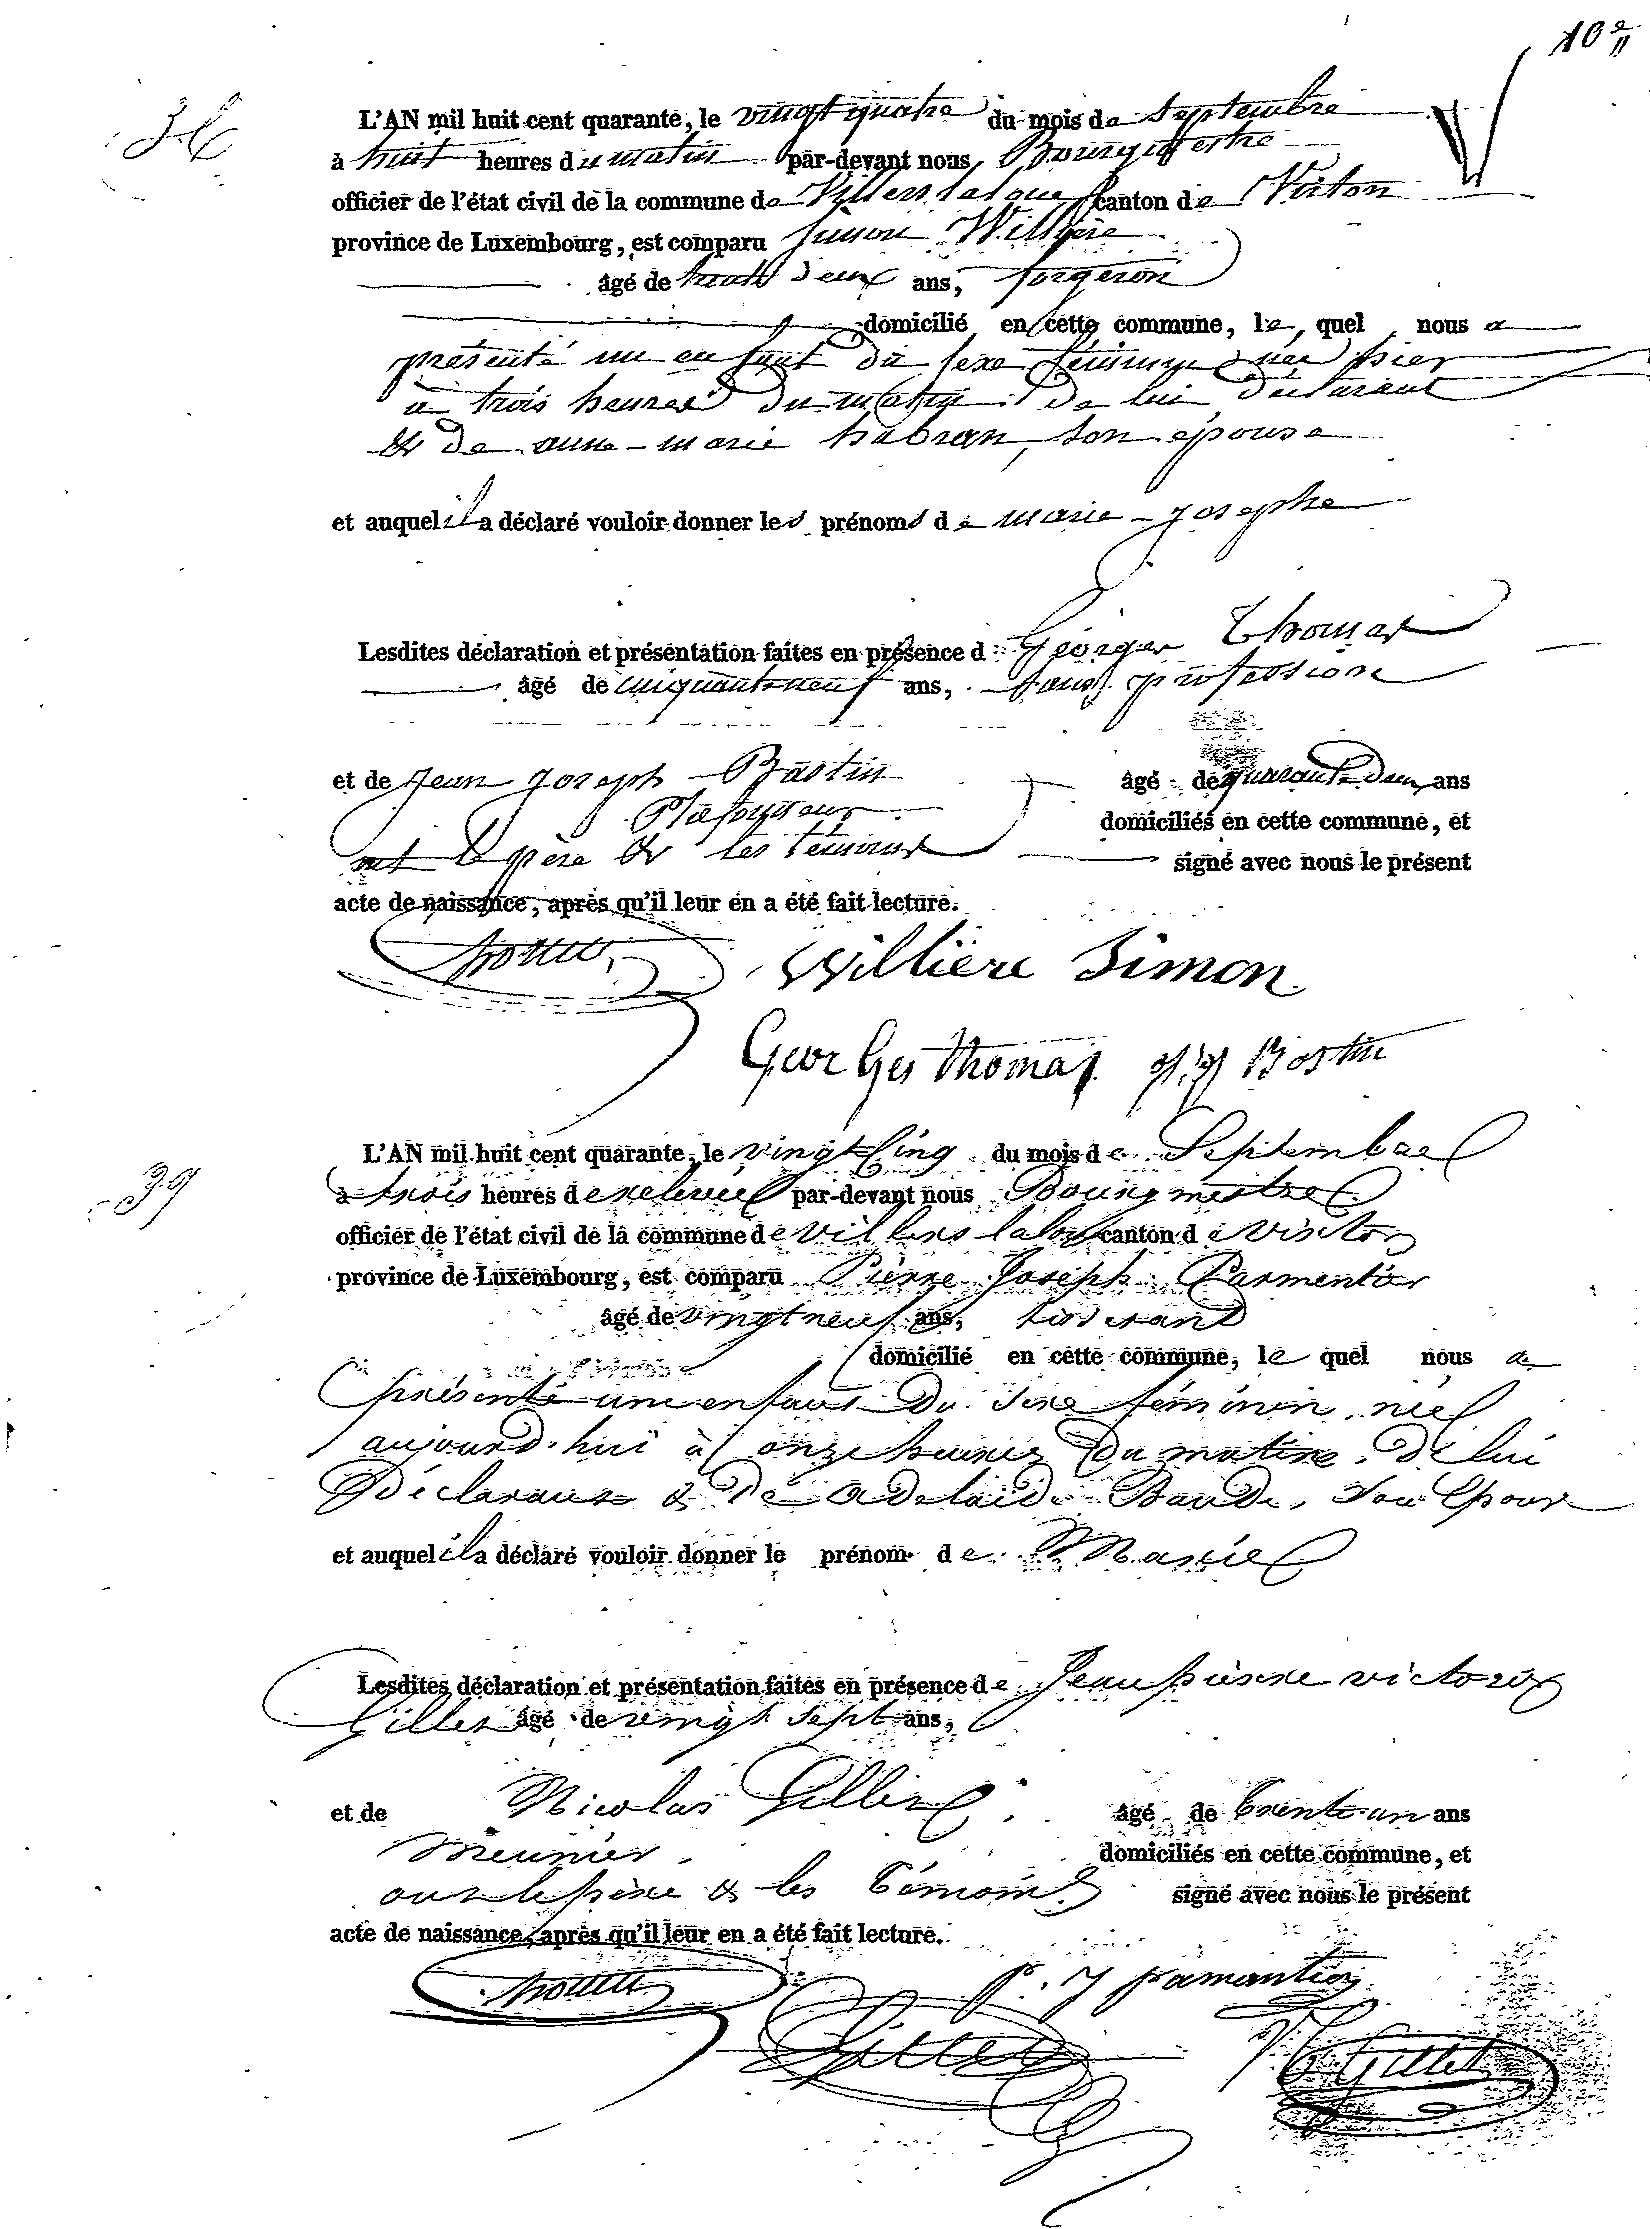 10
38
L'AN mil huit cent quarante, le vingt quatre du mois de Septembre
à huit heures du matin par-devant nous Bourgmestre
officier de l'état civil de la commune de Villers la loue canton de Virton
province de Luxembourg, est comparu Simon Willière
âgé de trente deux ans, forgeron
domicilié en cette commune, le quel nous a
présenté un enfant du sexe féminin née hier
à trois heures du matin de lui déclarant
& de anne-marie habran, son épouse
et auquel il a déclaré vouloir donner les prénoms de marie-josephe
Lesdites déclaration et présentation faites en présence d Georges Thomas
âgé de cinquante neuf ans, sans profession
et de jean joseph Bastin âgé de quarante deux ans
Plafonneur domiciliés en cette commune, et
ont le père & les témoins signé avec nous le présent
acte de naissance, après qu'il leur en a été fait lecture.
Willière Simon
Georges Thomas j. j Bastin
39
L'AN mil huit cent quarante, le vingt Cinq du mois de Septembre
à trois heures de relevée par-devant nous Bourgmestre
officier de l'état civil de la commune de villers laloue canton de virton
province de Luxembourg, est comparu Pierre Joseph Parmentier
âgé de vingt neuf ans, tisserand
domicilié en cette commune, le quel nous a
présenté une enfant du sexe féminin, née
aujourd'hui à onze heures du matin, de lui
déclarant & de Adelaide Baude, son Epouse
et auquel il a déclaré vouloir donner le prénom de Marie
Lesdites déclaration et présentation faites en présence de Jean pierre victor
Gillet âgé de vingt sept ans,
et de Nicolas Gillet âgé de trente un ans
meunier domiciliés en cette commune, et
ont le père & les témoins signé avec nous le présent
acte de naissance, après qu'il leur en a été fait lecture.
p. j parmantier
Gillet Gillet